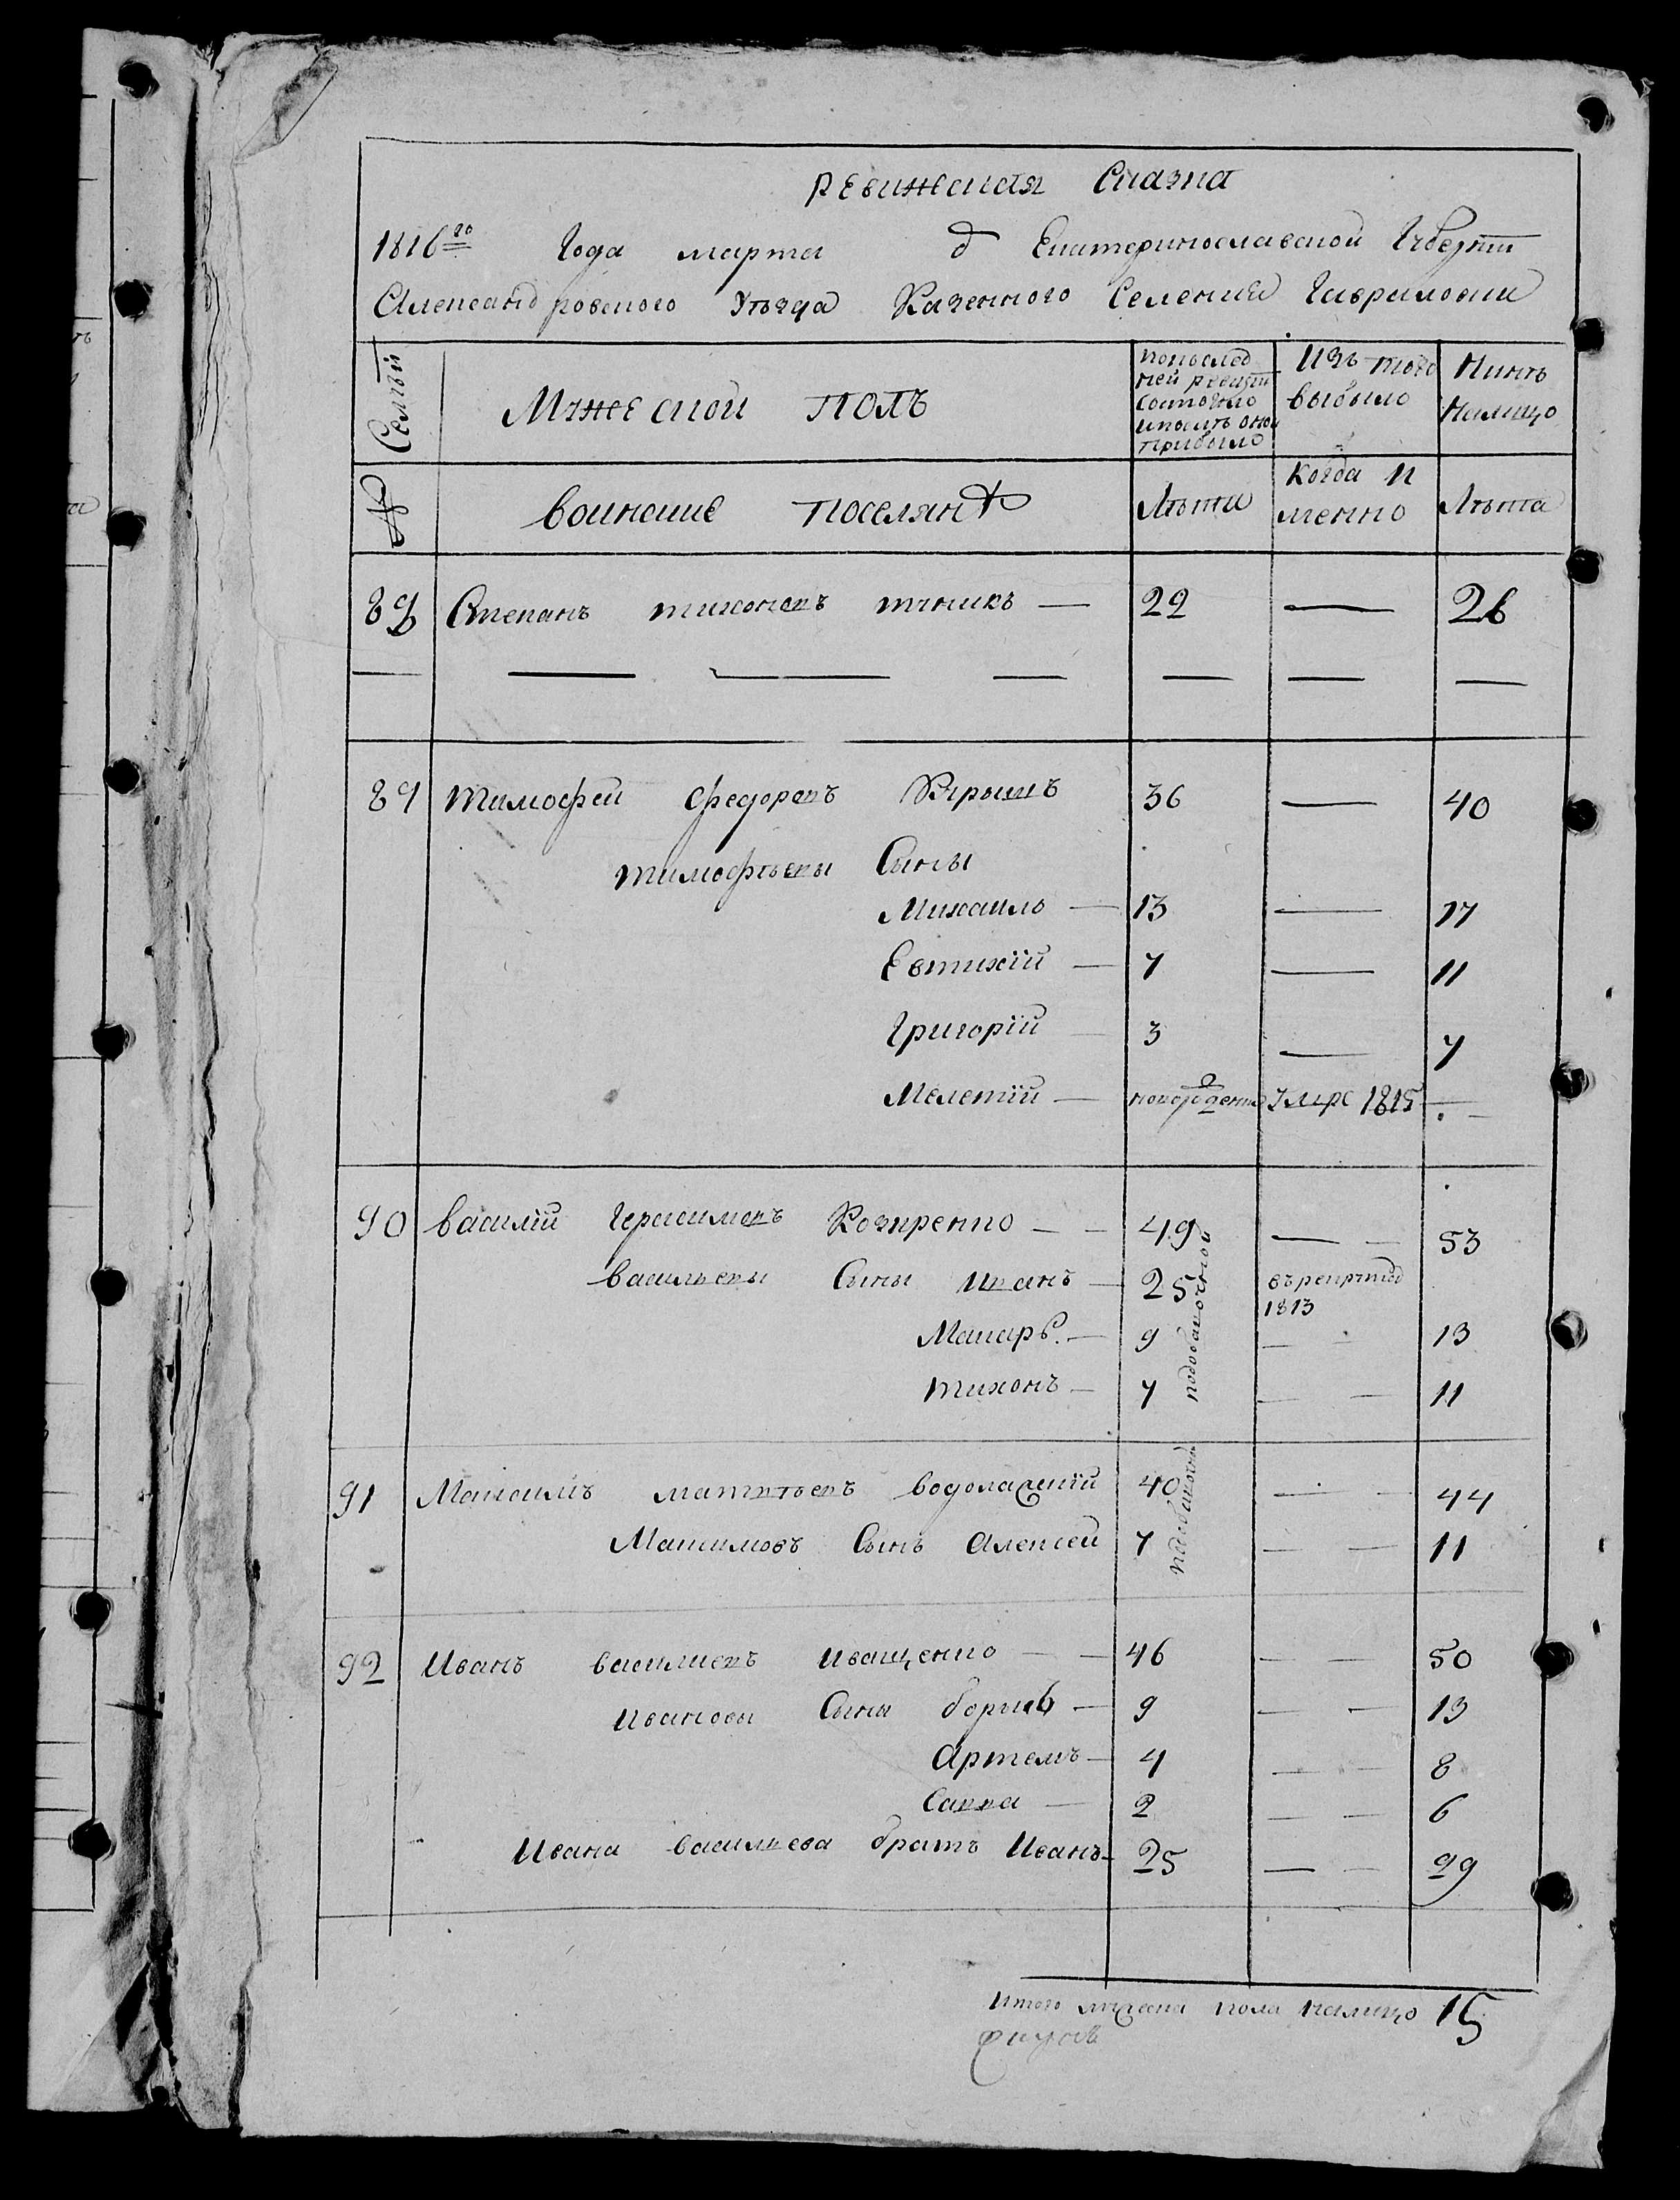 Ревижская Сказка
1816го Года марта д Екатеринославской Губернии
Александровского Уѣзда Казенного Селения Гавриловки
Семьи
Мужеской полъ
попослед
ней ревизи
состояло
ипослѣ оной
прибыло
Изъ того
выбыло
Нинѣ
Налицо
№
воинские поселянѣ
Лѣта
когда и
менно
Лѣта
88 Степанъ тихоновъ — 22 — 26
89 Тимофей федоровъ 36 — 40
тимофѣевы Сыны
Михаило — 13 — 17
Евтихій — 7 — 11
Григорій — 3 — 7
Мелетій — новорожденъ Умре 1815 —
90 василій Герасимовъ — — 49 — — 53
васильевы Сыны Иванъ — 25 въ рекруты
1813
Макаръ — 9 — 13
тихонъ — 7 — — 11
91 матвѣевъ водолазкій 40 — — 44
Максимовъ Сынъ Алексей 7 — — 11
92 Иванъ васильевъ Иващенко — — 46 — — 50
Ивановы Сыны борисъ — 9 — — 13
Артемъ — 4 — — 8
Савва — 2 — — 6
Ивана васильева братъ Иванъ — 25 — — 29
Итого мужеска пола налицо 15